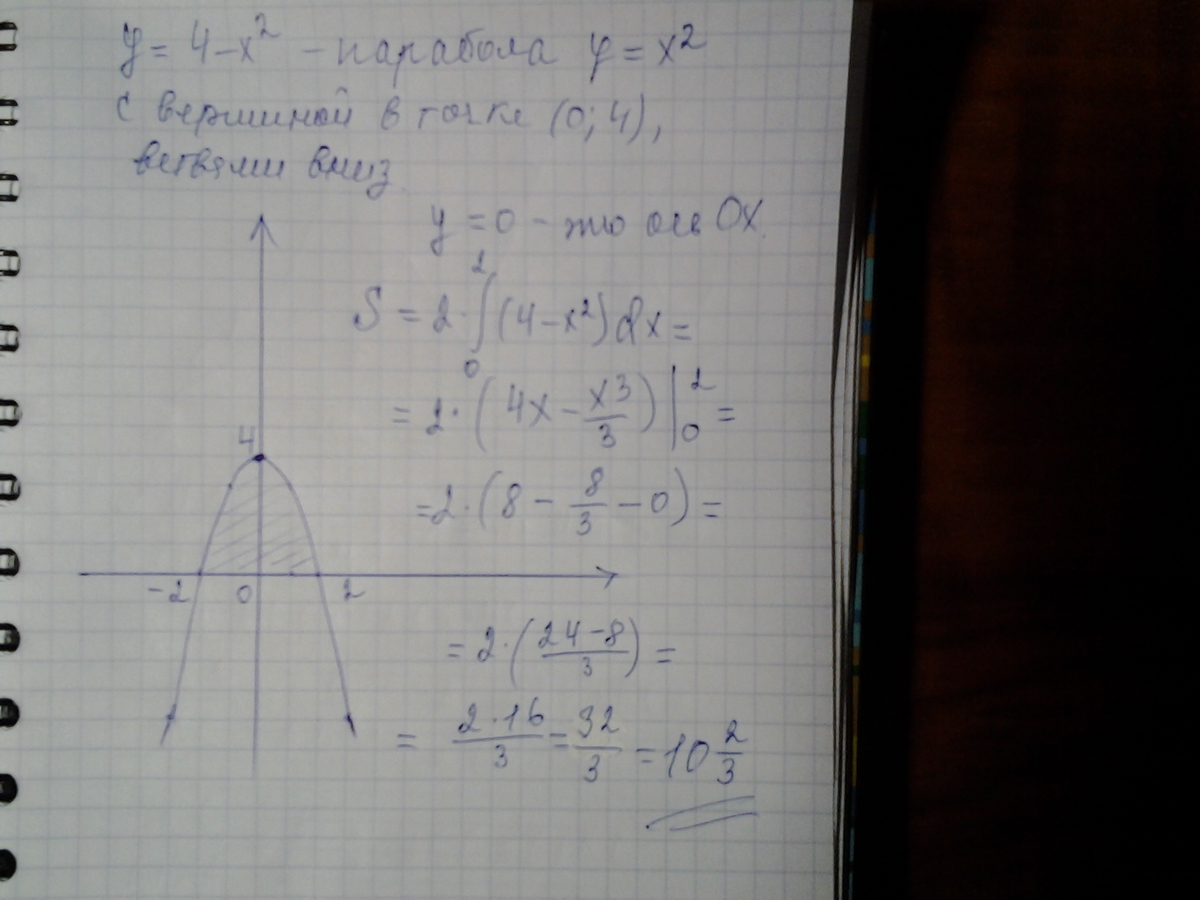 y = 4 - x² - парабола y = x²
с вершиной в точке (0; 4),
ветвями вниз.
y = 0 - это ось Ox.
S = 2 · ∫₀² (4 - x²) dx =
= 2 · (4x - x³/3) |₀² =
= 2 · (8 - 8/3 - 0) =
4
-2 0 2
= 2 · ((24 - 8)/3) =
= (2 · 16)/3 = 32/3 = 10 2/3